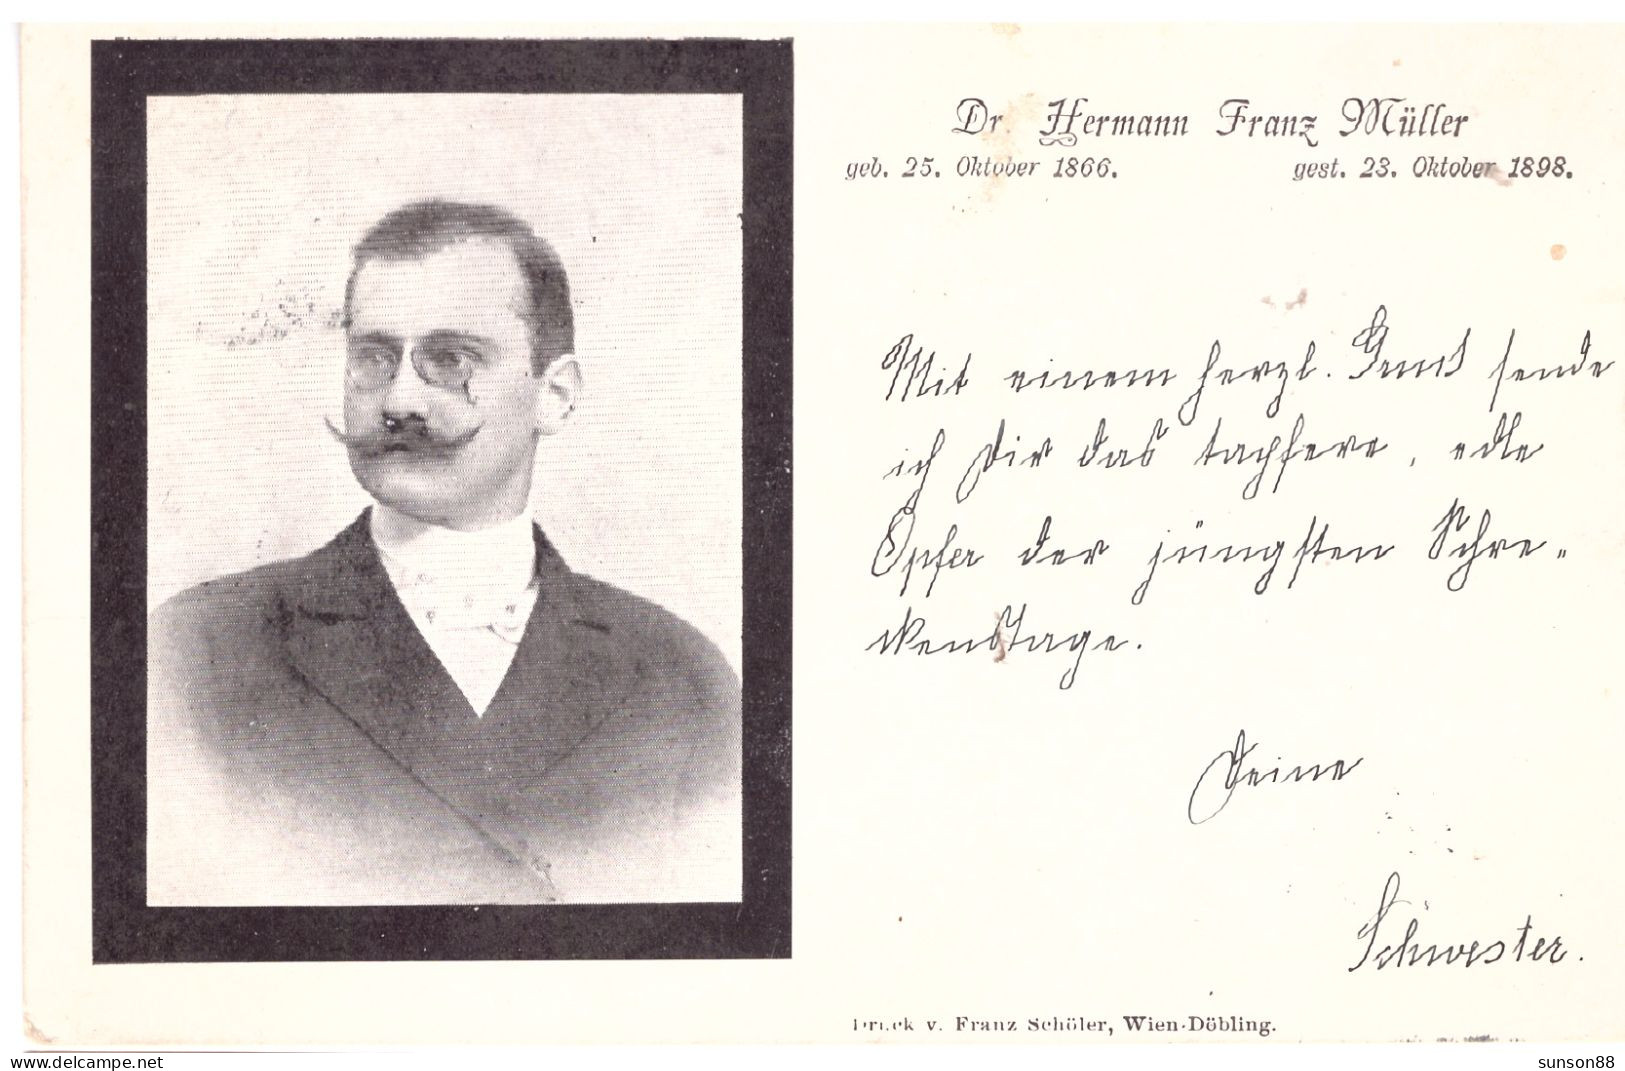 Dr. Hermann Franz Müller
geb. 25. Oktober 1866. gest. 23. Oktober 1898.
Mit einem herzl. Gruß sende
ich Dir das tapfere, edle
Opfer der jüngsten Schre-
ckenstage.
Deine
Schwester.
Druck v. Franz Schöler, Wien-Döbling.
www.delcampe.net
sunson88